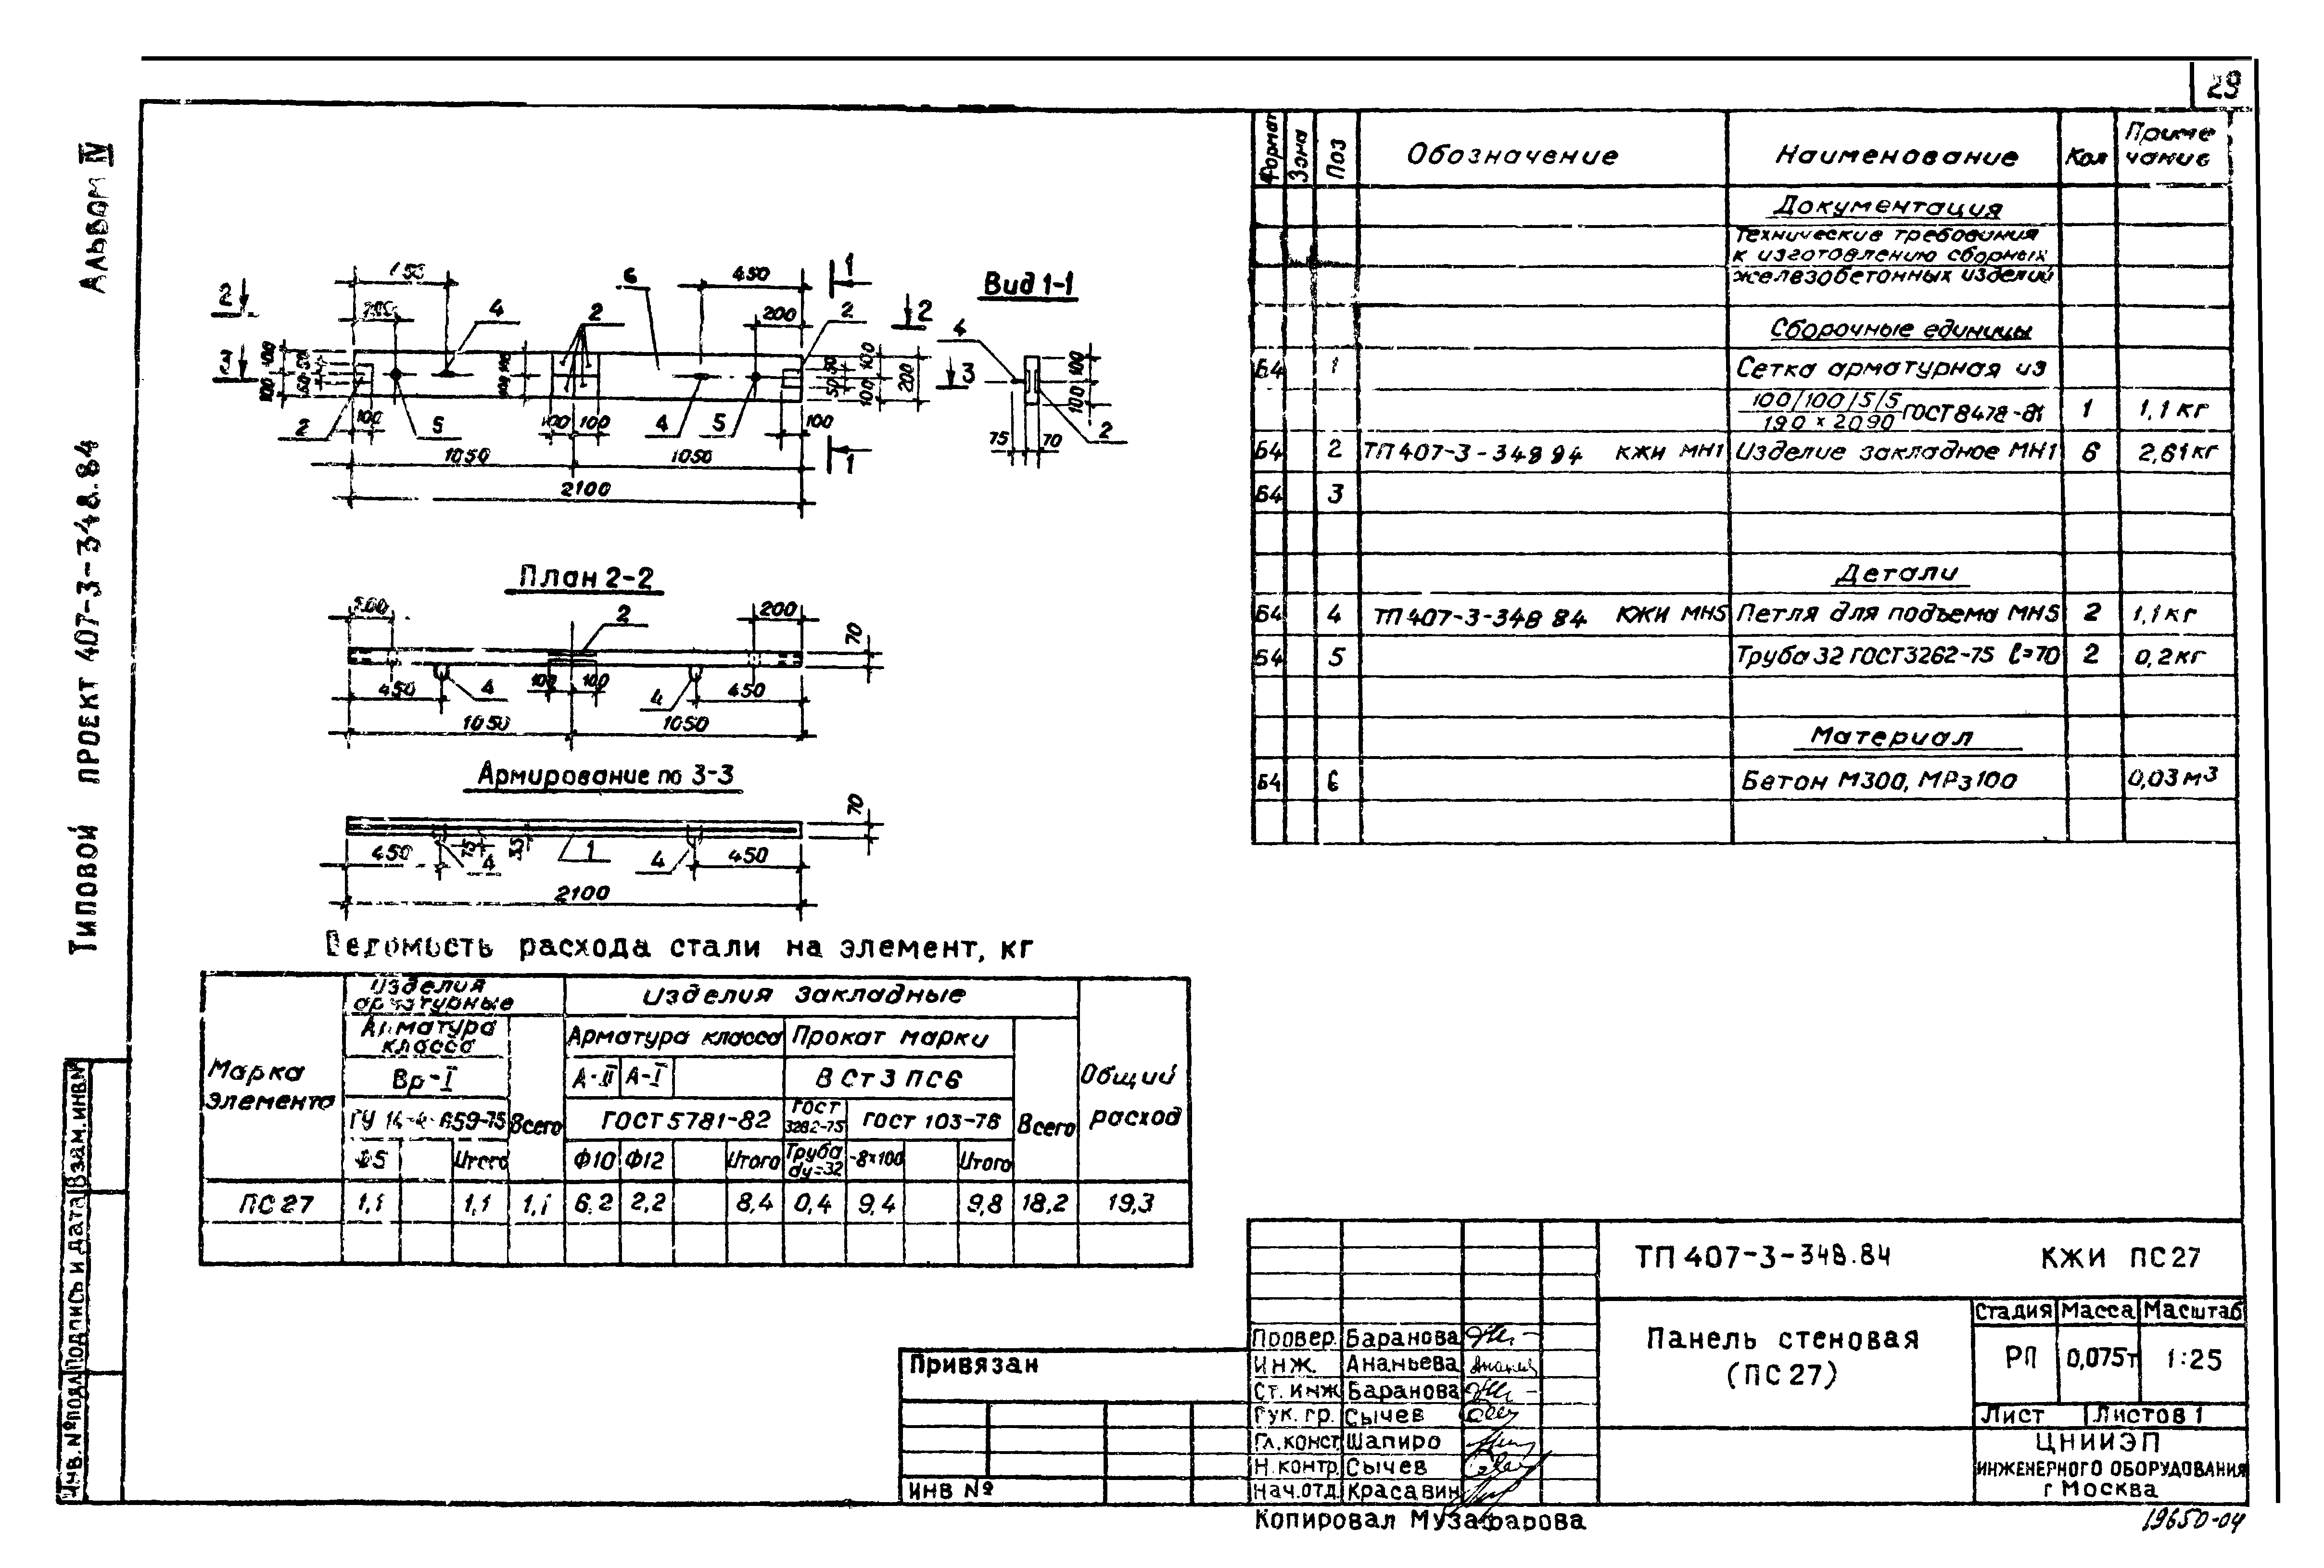 29
Альбом IV
Типовой проект 407-3-348.84
Взам.инв.№
Подпись и дата
Инв.№подл
450
1
2
200
4
2
6
450
200
2
2
3
100
100
50
50
100
100
100
50
50
100
100
200
3
2
100
5
100
100
4
5
100
1050
1050
1
2100
Вид 1-1
4
100
100
75
70
2
План 2-2
200
2
200
70
450
4
100
100
4
450
1050
1050
Армирование по 3-3
70
450
4
75
35
1
4
450
2100
Формат
Зона
Поз
Обозначение
Наименование
Кол
Приме
чание
Документация
Технические требования
к изготовлению сборных
железобетонных изделий
Сборочные единицы
Б4 1 Сетка арматурная из
100/100/5/5
190 х 2090
ГОСТ8478-81 1 1,1 кг
Б4 2 ТП407-3-348 84 КЖИ МН1 Изделие закладное МН1 6 2,61кг
Б4 3
Детали
Б4 4 ТП407-3-348 84 КЖИ МН5 Петля для подъема МН5 2 1,1 кг
Б4 5 Труба 32 ГОСТ3262-75 ℓ=70 2 0,2кг
Материал
Б4 6 Бетон М300, МРз100 0,03м³
Ведомость расхода стали на элемент, кг
Марка
элемента
Изделия
арматурные
Изделия закладные
Общий
расход
Арматура
класса
Всего
Арматура класса
Прокат марки
Всего
Вр-I
А-II А-I
В Ст 3 ПС6
ТУ 14-4-659-75
ГОСТ 5781-82
ГОСТ
3262-75
ГОСТ 103-76
Ф5 Итого
Ф10 Ф12 Итого
Труба
dy=32
-8х100 Итого
ПС 27 1,1 1,1 1,1 6,2 2,2 8,4 0,4 9,4 9,8 18,2 19,3
Привязан
ИНВ №
ТП 407-3-348.84 КЖИ ПС27
Панель стеновая
(ПС 27)
Стадия Масса Масштаб
РП 0,075т 1:25
Лист Листов 1
ЦНИИЭП
инженерного оборудования
г Москва
Провер. Баранова
Инж. Ананьева
Ст. инж Баранова
Рук. гр. Сычев
Гл.конст Шапиро
Н.контр. Сычев
Нач.отд. Красавин
Копировал Музафарова
19650-04